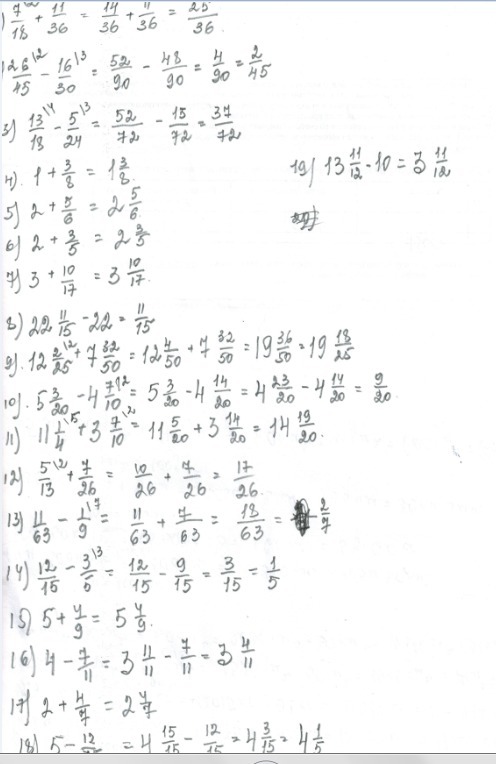 1) 7/18\2 + 11/36 = 14/36 + 11/36 = 25/36.
26/45\2 - 16/30\3 = 52/90 - 48/90 = 4/90 = 2/45
3) 13/18\4 - 5/24\3 = 52/72 - 15/72 = 37/72
4) 1 + 3/8 = 1 3/8.
5) 2 + 5/6 = 2 5/6.
6) 2 + 3/5 = 2 3/5
7) 3 + 10/17 = 3 10/17.
8) 22 11/15 - 22 = 11/15
9) 12 2/25\2 + 7 32/50 = 12 4/50 + 7 32/50 = 19 36/50 = 19 18/25
10) 5 3/20 - 4 7/10\2 = 5 3/20 - 4 14/20 = 4 23/20 - 4 14/20 = 9/20
11) 11 1/4\5 + 3 7/10\2 = 11 5/20 + 3 14/20 = 14 19/20.
12) 5/13\2 + 7/26 = 10/26 + 7/26 = 17/26.
13) 11/63 - 1/9\7 = 11/63 + 7/63 = 18/63 = 2/7
14) 12/15 - 3/5\3 = 12/15 - 9/15 = 3/15 = 1/5
15) 5 + 4/9 = 5 4/9.
16) 4 - 7/11 = 3 11/11 - 7/11 = 3 4/11
17) 2 + 4/7 = 2 4/7
18) 5 - 12/ = 4 15/15 - 12/15 = 4 3/15 = 4 1/5
19) 13 11/12 - 10 = 3 11/12